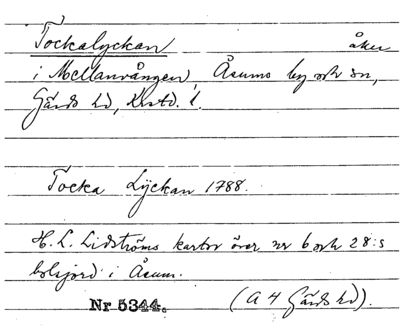 Tockalyckan åker
i Mellanvången, Åsums by och sn,
Gärds hd, Krstd. l.
Tocka Lyckan 1788.
H. L. Lidströms kartor över nr 6 och 28:s
bolsjord i Åsum.
Nr 5344. (A 4 Gärds hd).